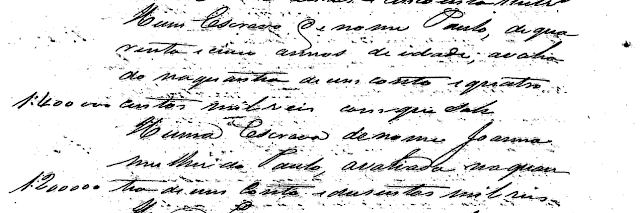 Hum Escravo de nome Paulo, de qua
renta e cinco annos de idade, avalia
do na quantia de um conto e quatro
1:400000 centos mil reis
Huma Escrava de nome Joanna
mulher do Paulo, avaliada na quan
1:200000 tia de um Conto e dusentos mil reis